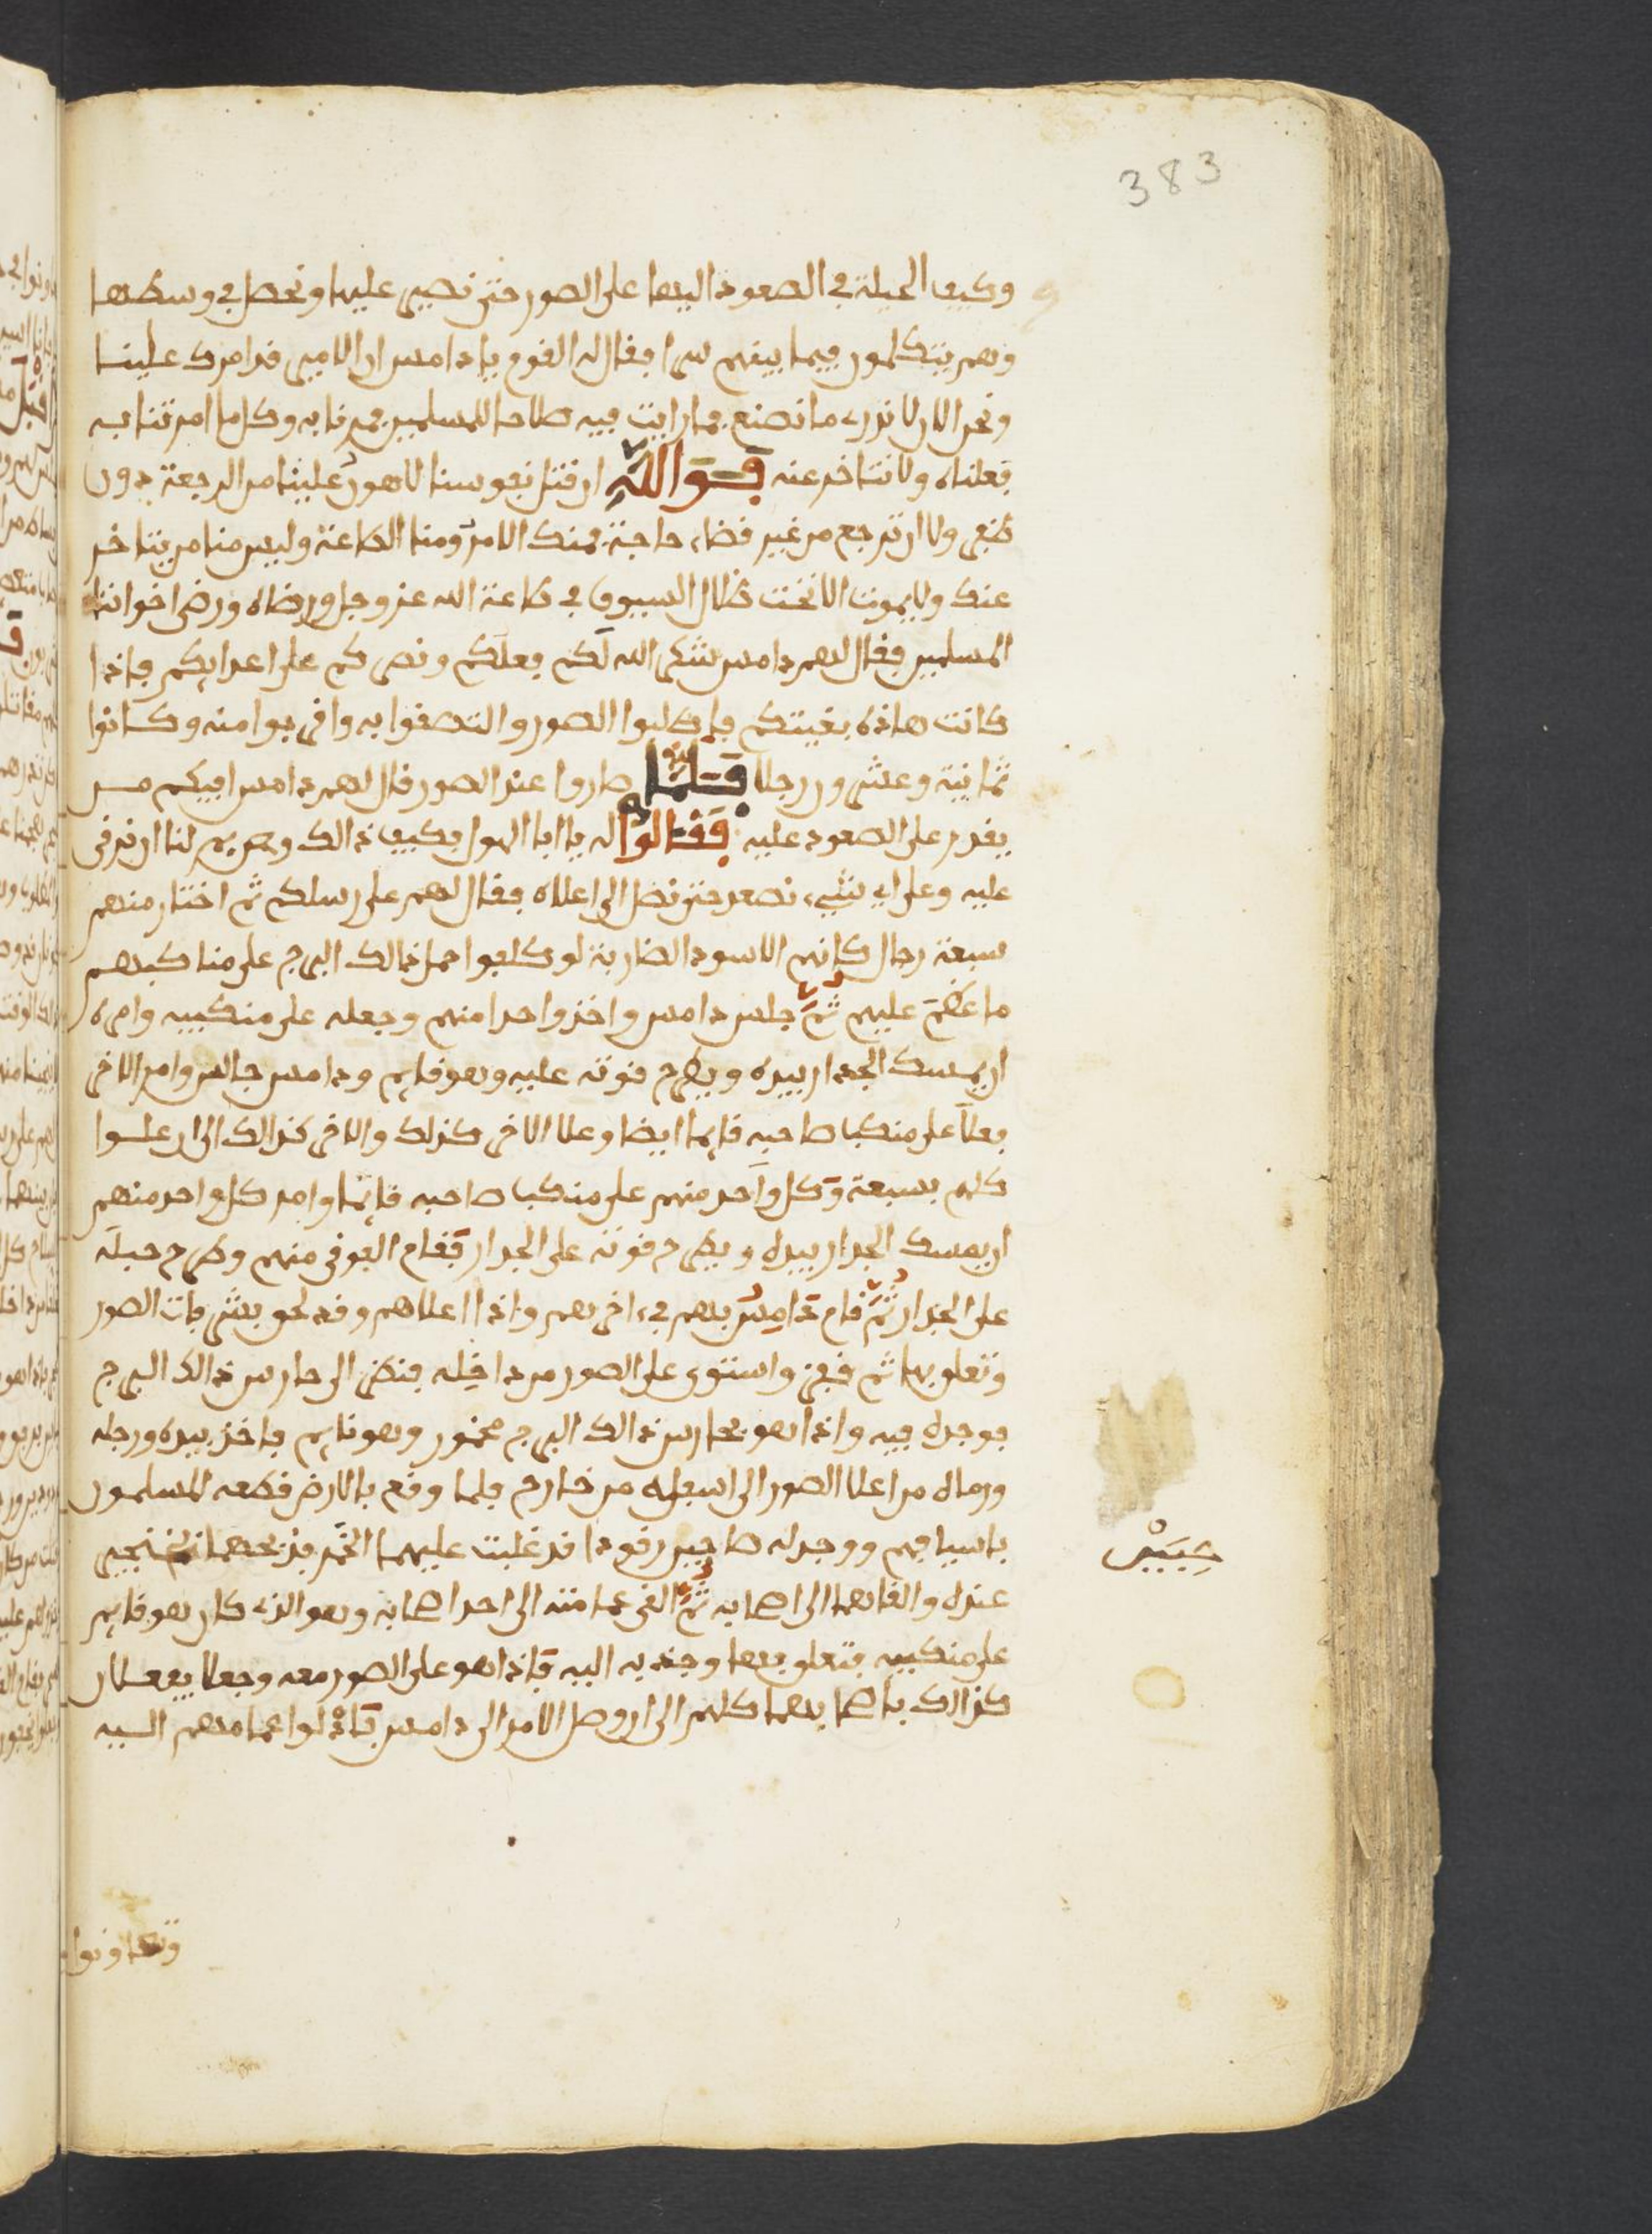 383
وكيف الحيلة في الصعود اليها على الصور حتى نصير عليها ونحصل في وسطها
وهم يتكلمون فيما بينهم سرا فقال له القوم يا دامس ان الامير قد امرك علينا
ونحن الان لا ندري ما نصنع فما رايت فيه صلاحا للمسلمين فمرنا به وكل ما امرتنا به
فعلناه ولا نتاخر عنه فوالله ان قتل نفوسنا لاهون علينا من الرجعة دون
نفع ولا ان نرجع من غير قضاء حاجة فمنك الامر ومنا الطاعة وليس منا من يتاخر
عنك ولا يموت الا تحت ظلال السيوف في طاعة الله عز وجل ورضاه ورضى اخواننا
المسلمين فقال لهم دامس شكر الله لكم فعلكم ونصركم على اعدايكم فاذا
كانت هاذه بغيتكم فاطلبوا الصور والتصقوا به واقربوا منه وكانوا
ثمانية وعشرون رجلا فلما صاروا عند الصور قال لهم دامس افيكم من
يقدر على الصعود عليه فقالوا له يا ابا الهول فكيف ذالك ومن لنا ان نرقى
عليه وعلى اي شيء نصعد حتى نصل الى اعلاه فقال لهم على رسلكم ثم اختار منهم
سبعة رجال كانهم الاسود الضارية لو كلفوا حمل ذالك البرج على مناكبهم
ما عظم عليهم ثم جلس دامس واخذ واحدا منهم وجعله على منكبيه وامره
ان يمسك الجدار بيده ويطرح قوته عليه وهو قايم ودامس جالس وامر الاخر
فعلا على منكبا صاحبه قايما ايضا وعلا الاخر كذلك والاخر كذالك الى ان علوا
كلهم سبعة وكل واحد منهم على منكبا صاحبه قايما وامر كل واحد منهم
ان يمسك الجدار بيده ويطرح قوته على الجدار فقام الفوقي منهم وطرح حبله
على الجدار ثم قام دامس بهم في اخرهم واذا اعلاهم وقد لحق بشرفات الصور
وتعلق بها ثم قفز واستوى على الصور من داخله فنظر الى حارس ذالك البرج
فوجده فيه واذا هو بحارس ذالك البرج مخمور وهو نايم فاخذ بيده ورجله
ورماه من اعلا الصور الى اسفله من خارج فلما وقع بالارض قطعه المسلمون
باسيافهم ووجد له صاحبين رقودا قد غلبت عليهما الخمر فذبحهما بخنجر
عنده والقاهما الى اصحابه ثم القى عمامته الى احد اصحابه وهو الذي كان هو قايم
على منكبيه فتعلق بها وجذبه اليه فاذا هو على الصور معه وجعلا يفعلان
كذالك باصحابهما كلهم الى ان وصل الامر الى دامس فادلوا عمامهم اليه
وتعاونوا